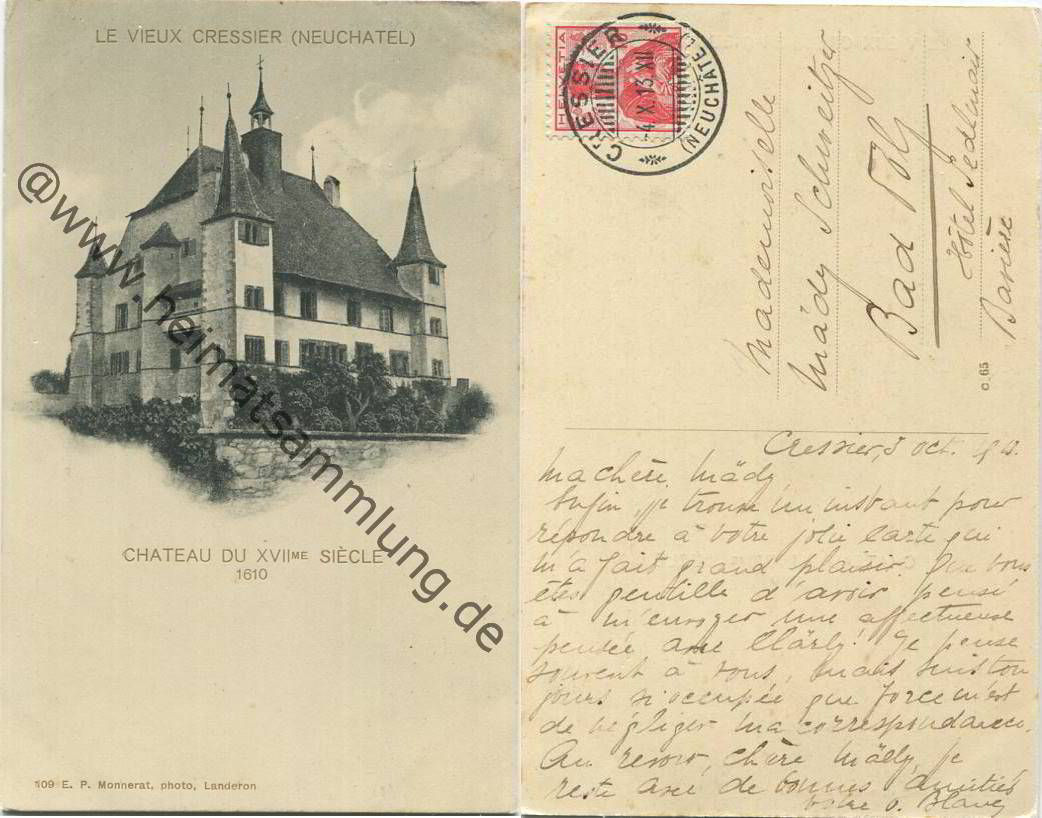 LE VIEUX CRESSIER (NEUCHATEL)
@www.heimatsammlung.de
CHATEAU DU XVIIME SIÈCLE
1610
109 E. P. Monnerat, photo, Landeron
HELVETIA
CRESSIER
-4.X.13.XII
(NEUCHÂTEL)
Mademoiselle
Mädy Schweitzer
Bad Tölz
Hôtel Sedlmair
Bavière
c. 65
Cressier, 3 oct. 1913.
Ma chère Mädy
Enfin, je trouve un instant pour
répondre à votre jolie carte qui
m'a fait grand plaisir. Que vous
êtes gentille d'avoir pensé
à m'envoyer une affectueuse
pensée avec Clärly! Je pense
souvent à vous, mais suis tou
jours si occupée que force m'est
de négliger ma correspondance.
Au revoir, chère Mädy, je
reste avec de bonnes amitiés
votre